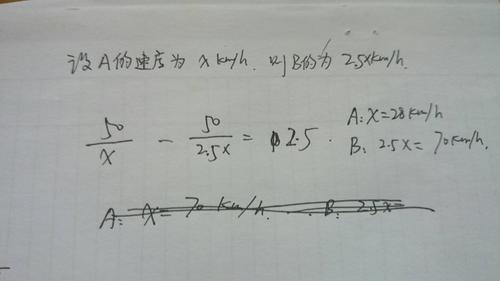 设A的速度为 x km/h. 则B的为 2.5x km/h.
50/x - 50/2.5x = 2.5.
A: x=28 km/h
B: 2.5x = 70 km/h.
A: x= 70 km/h. B: 2.5x=